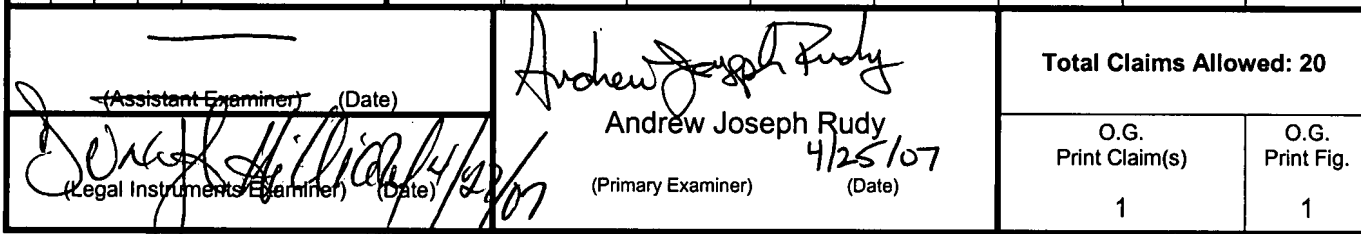 (Assistant Examiner) (Date)
(Legal Instruments Examiner) (Date)
Andrew Joseph Rudy
Andrew Joseph Rudy
4/25/07
(Primary Examiner) (Date)
Total Claims Allowed: 20
O.G.
Print Claim(s)
1
O.G.
Print Fig.
1